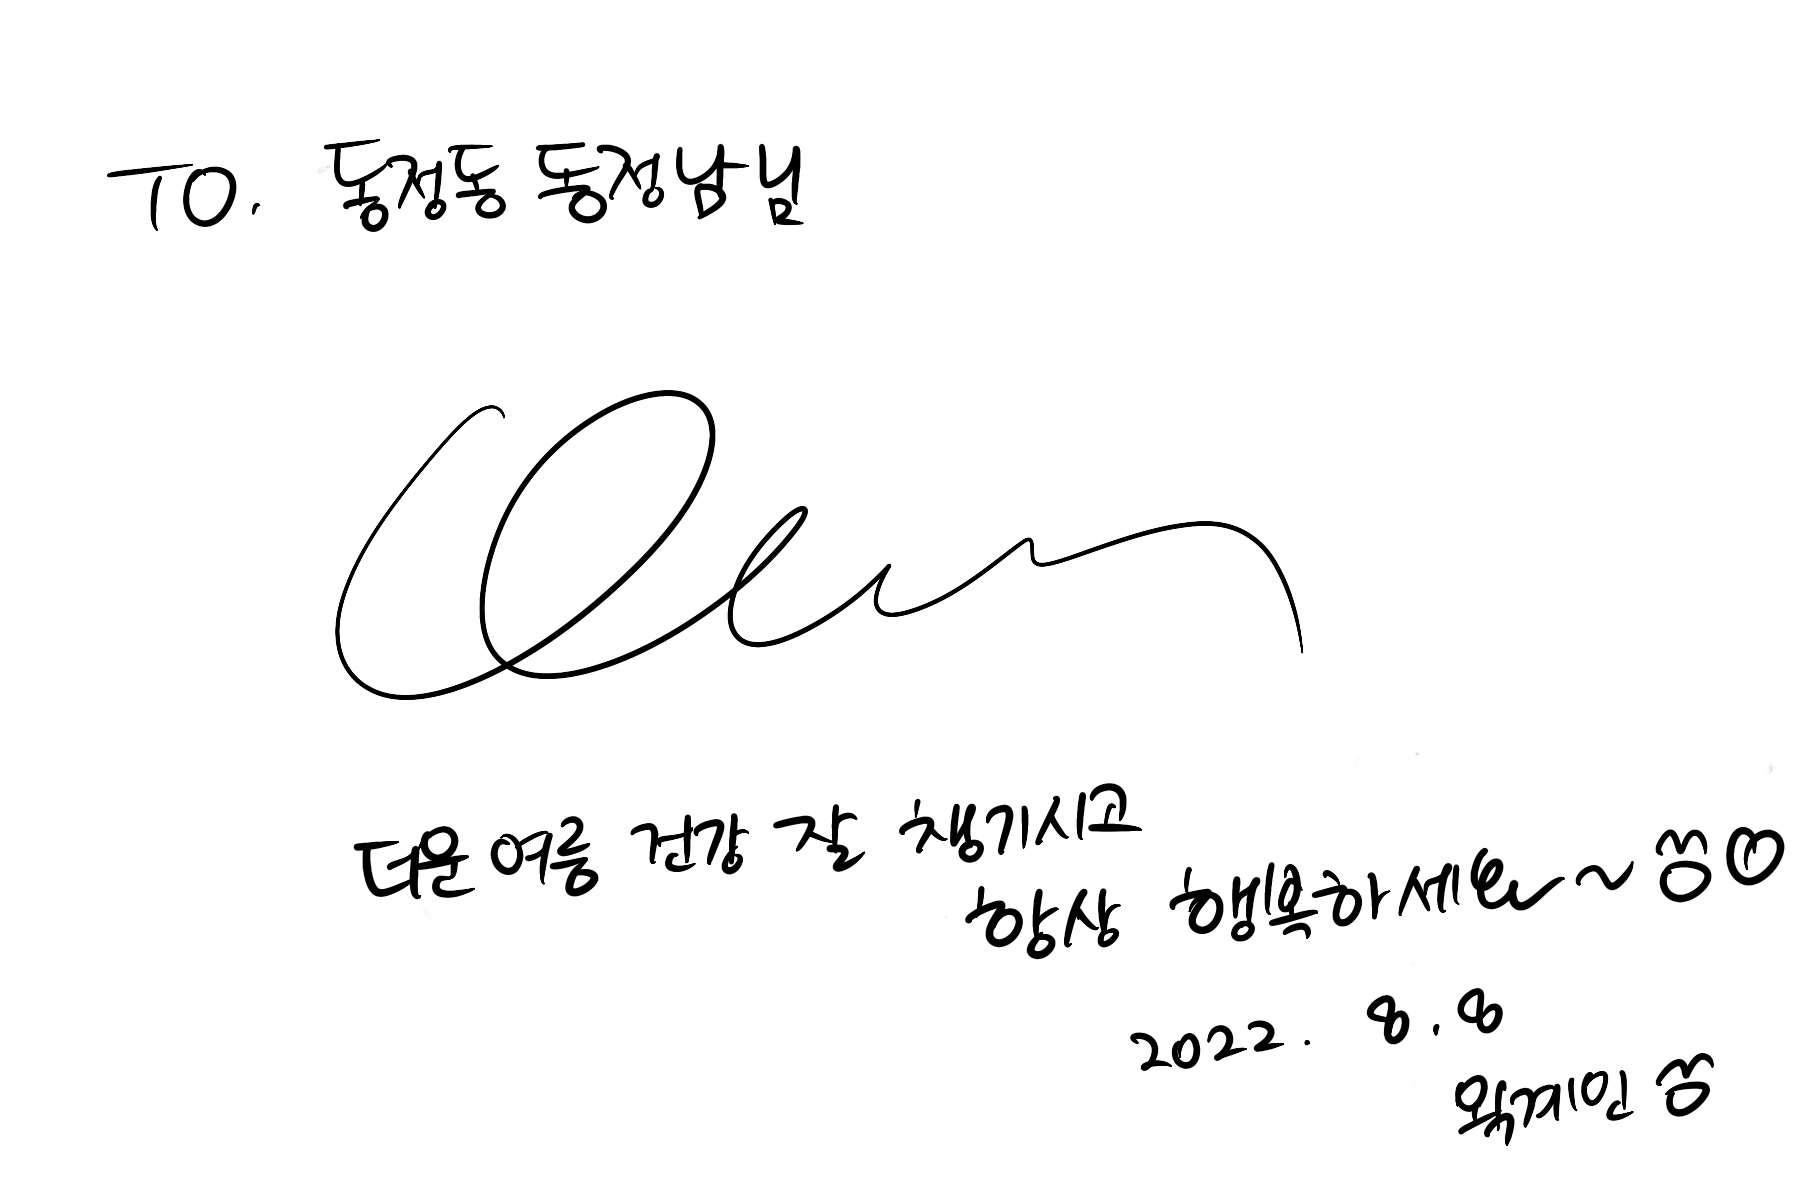 TO. 동정동 동정남님
더운 여름 건강 잘 챙기시고
항상 행복하세요~ ㅎㅇ
2022. 8. 8
왁계인 ㅎ